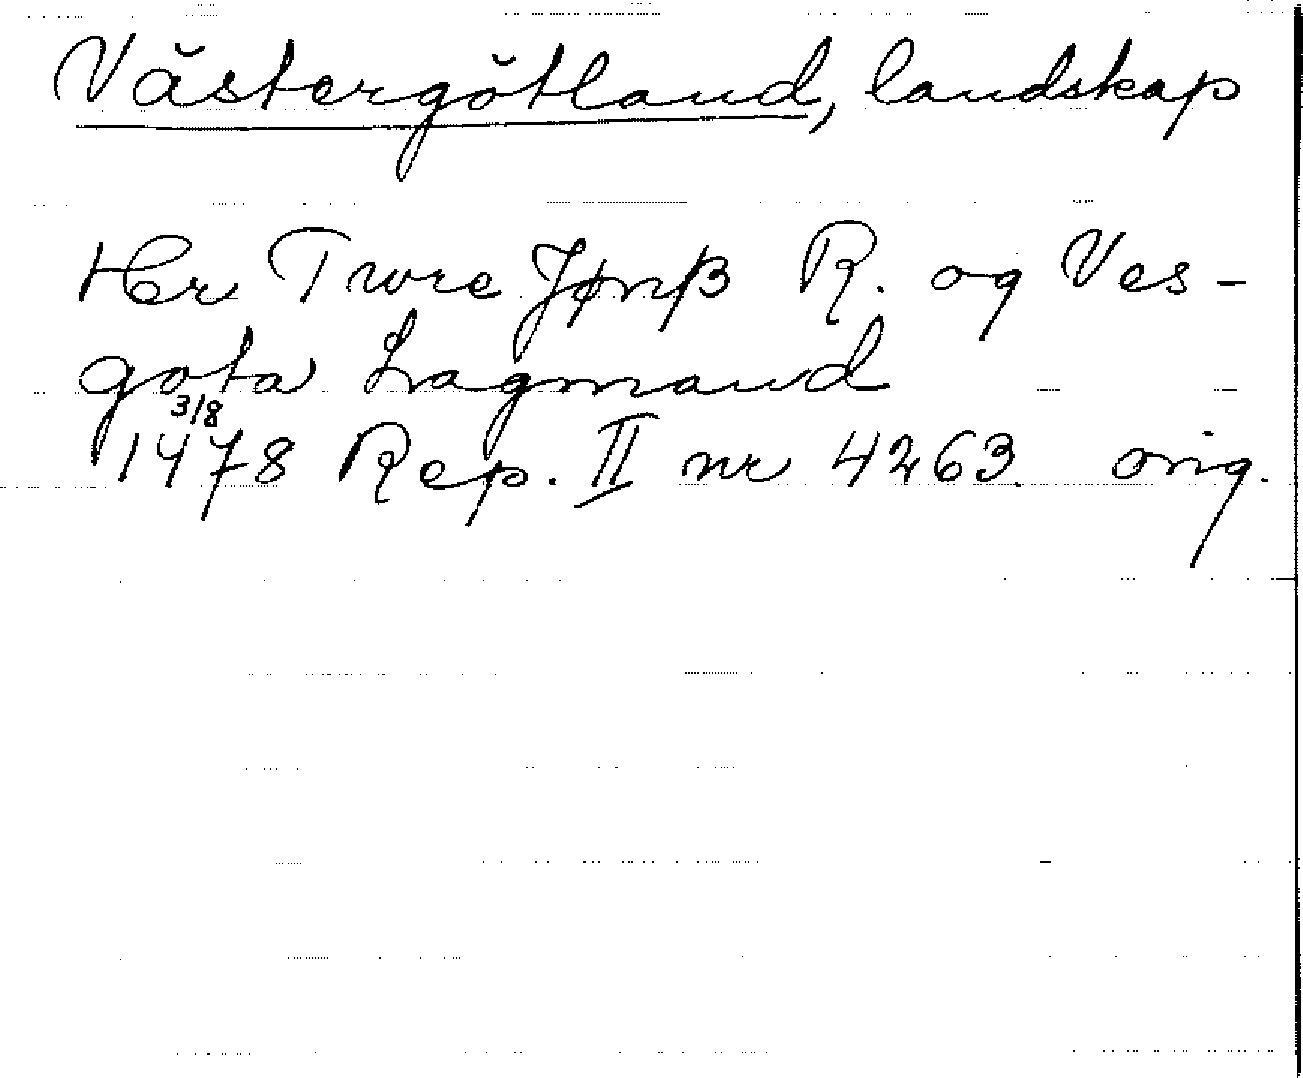 Västergötland, landskap
Her Twre Jønß R. og Ves-
gota Lagmand
3/8
1478 Rep. II nr 4263. orig.